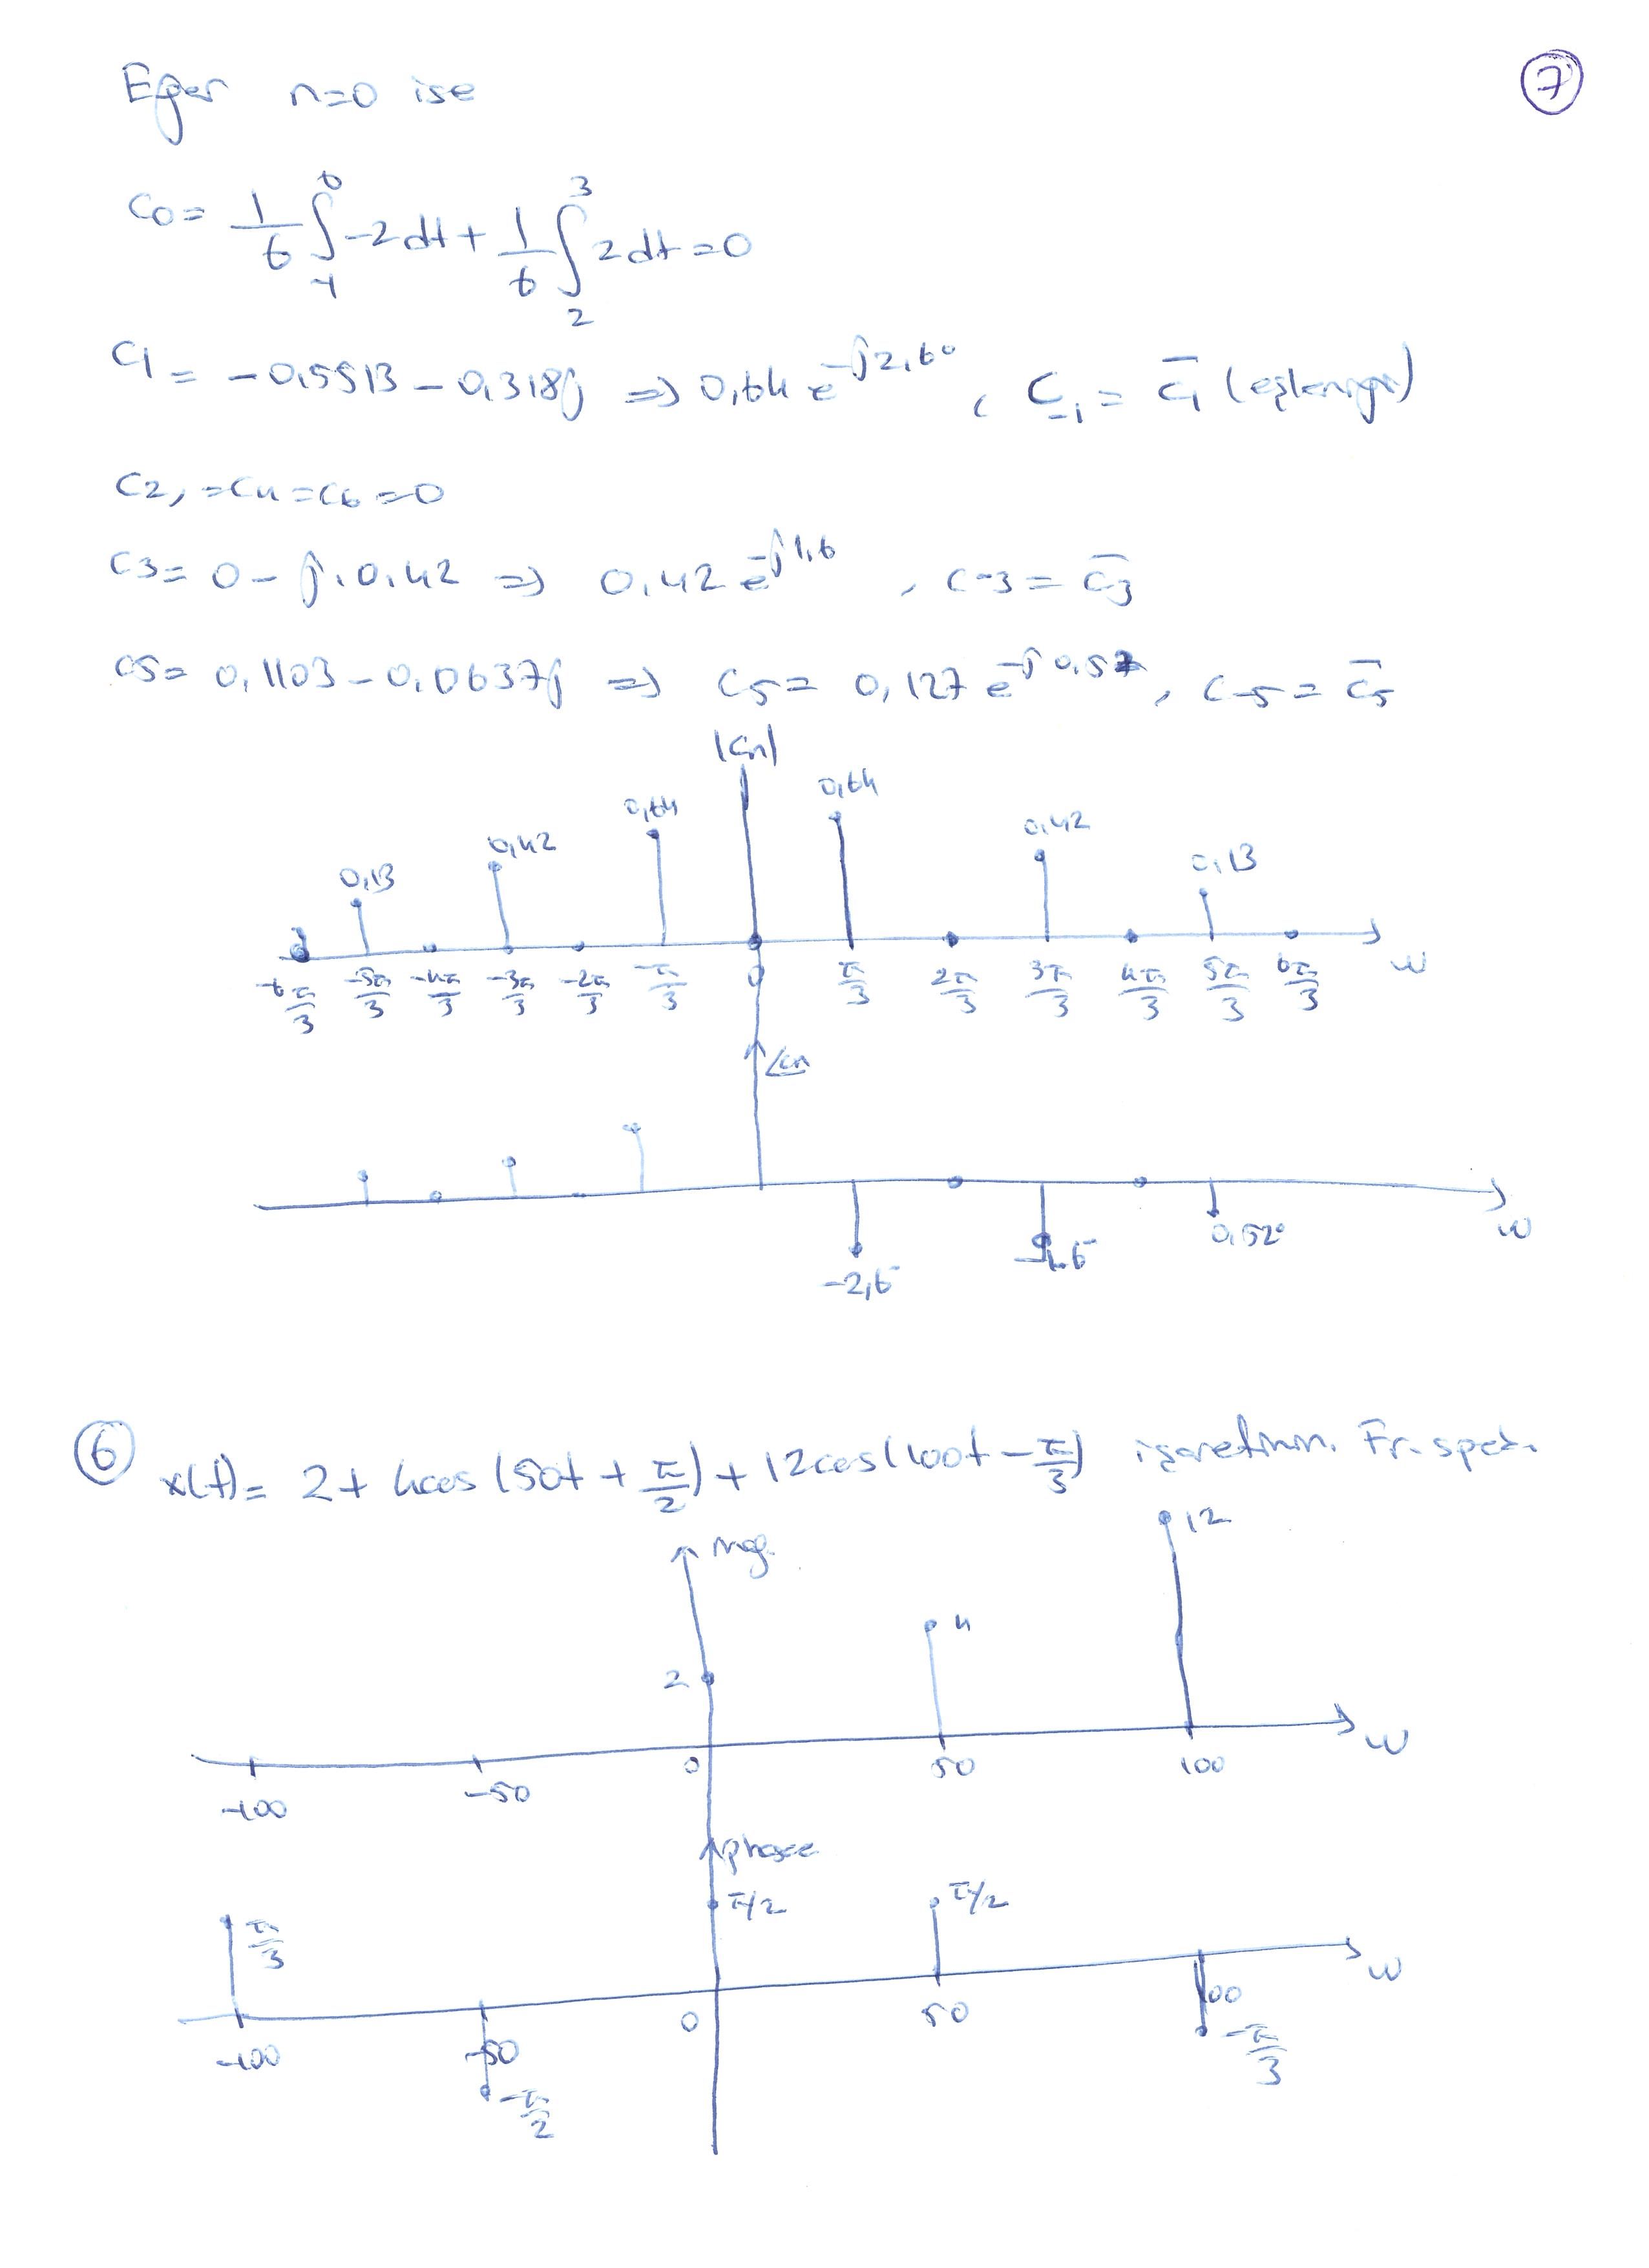 Eğer n=0 ise
7
C0 = 1/6 ∫_{-1}^{0} -2dt + 1/6 ∫_{2}^{3} 2dt = 0
C1 = -0,5513 - 0,318j => 0,64 e^{-j2,6°}, C_{-1} = \overline{C1} (eşleniği)
C2, = C4 = C6 = 0
C3 = 0 - j.0.42 => 0,42 e^{-j1,6}, C-3 = \overline{C3}
C5 = 0,1103 - 0,0637j => C5 = 0,127 e^{-j0,52}, C-5 = \overline{C5}
|Cn|
0,13 0,42 0,64 0,64 0,42 0,13
-6π/3 -5π/3 -4π/3 -3π/3 -2π/3 -π/3 0 π/3 2π/3 3π/3 4π/3 5π/3 6π/3 w
∠Cn
-2,6 -1,6 0,52° w
6 x(t) = 2 + 4cos(50t + π/2) + 12cos(100t - π/3) işaretinin. Fr. spekt.
mag.
12
4
2
-100 -50 0 50 100 w
phase
π/3 π/2 π/2
-100 -50 0 50 100 w
-π/2 -π/3